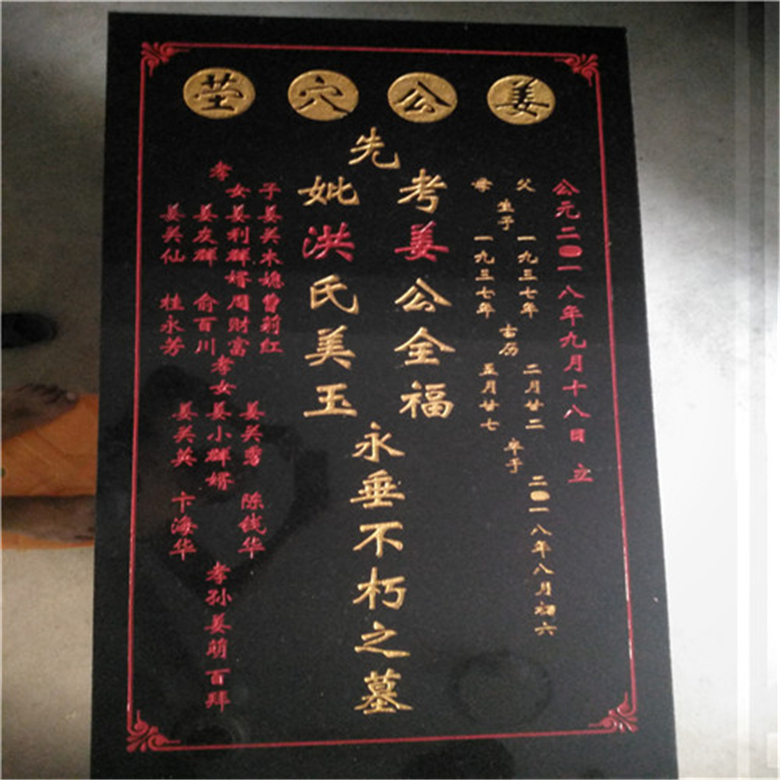 姜公穴茔
公元二〇一八年九月十八日 立
父 一九三七年 二月廿二
生于 古历 卒于 二〇一八年八月初六
母 一九三七年 五月廿七
先
考姜公全福
妣洪氏美玉
永垂不朽之墓
孝
子姜关木媳曾莉红
女姜利群婿周财富
姜友群 俞百川
姜关仙 桂永芳
孝女
姜关 陈钱华
姜小群婿
姜关英 卞海华
孝孙姜萌百拜